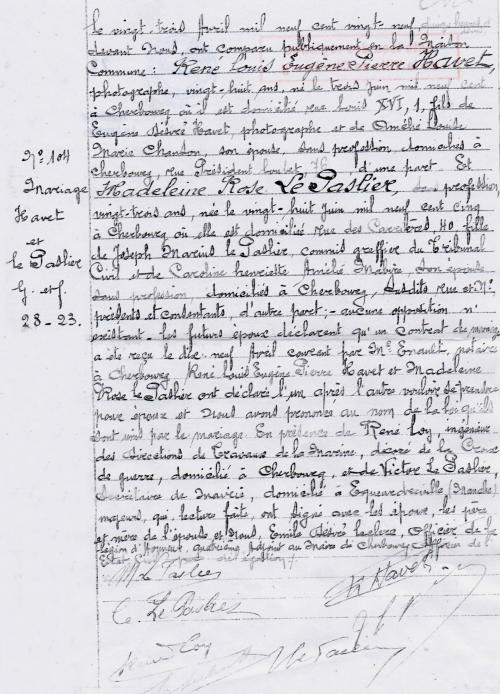 Le vingt-trois Avril mil neuf cent vingt-neuf
devant Nous, ont comparu publiquement en la Maison
Commune : René Louis Eugène Pierre Havet,
photographe, vingt-huit ans, né le trois Juin mil neuf cent
à Cherbourg où il est domicilié rue Louis XVI, 1, fils de
Eugène Désiré Havet, photographe et de Amélie Louise
Marie Chandon, son épouse, sans profession, domiciliés à
Cherbourg, rue Président Loubet d'une part. Et
Madeleine Rose Le Paslier, sans profession
vingt-trois ans, née le vingt-huit Juin mil neuf cent cinq
à Cherbourg où elle est domiciliée rue des Carrières 40 fille
de Joseph Marcius Le Paslier, commis greffier du Tribunal
Civil et de Caroline henriette Amélie son épouse
sans profession, domiciliés à Cherbourg, susdits rue et N°
présents et consentants, d'autre part ; - aucune opposition n'
existant. - les futurs époux déclarent qu'un Contrat de mariage
a été reçu le dix-neuf Avril courant par Me Enault, notaire
à Cherbourg René Louis Eugène Pierre Havet et Madeleine
Rose Le Paslier ont déclaré l'un après l'autre vouloir se prendre
pour époux et Nous avons prononcé au nom de la loi qu'ils
sont unis par le mariage. En présence de René Loy ingénieur
des Directions de Travaux de la Marine, décoré de la Croix
de guerre, domicilié à Cherbourg et de Victor Le Paslier,
Secrétaire de Mairie, domicilié à Equeurdreville (Manche)
majeurs, qui, lecture faite, ont signé avec les époux, les père
et mère de l'épouse et Nous, Emile Désiré Leclerc, Officier de la
Légion d'Honneur, quatrième Adjoint au Maire de Cherbourg Officier de l'
Etat Civil
N° 104
Mariage
Havet
et
Le Paslier
G. et f.
28-23.
M Le Paslier
R Havet
C. Le Paslier
René Loy